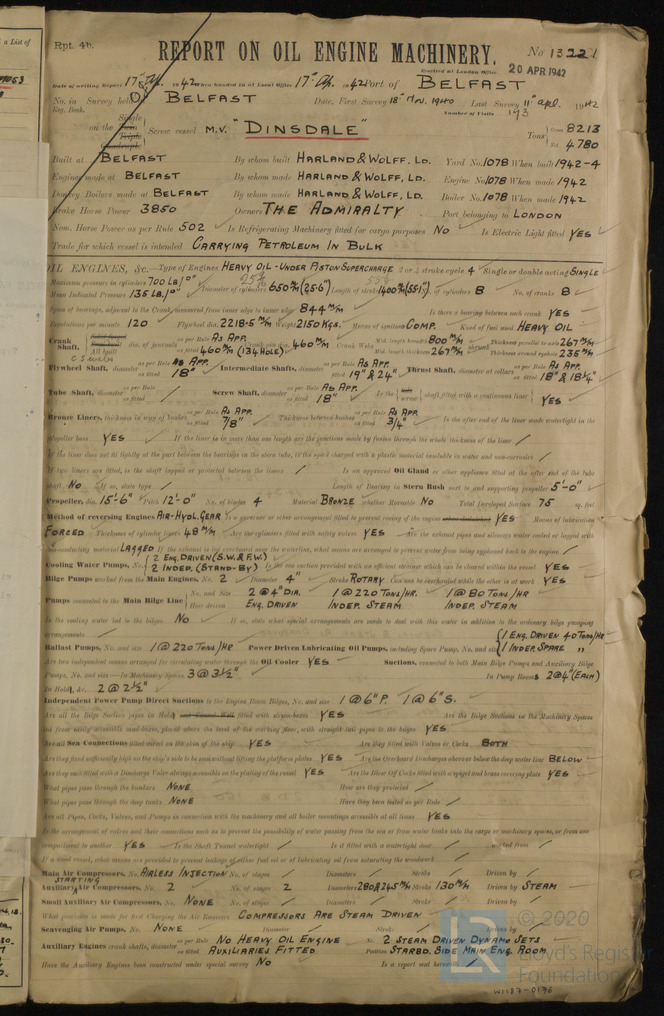 a List of
Rpt. 4b.
REPORT ON OIL ENGINE MACHINERY.
No 13221
Received at London Office 20 APR 1942
Date of writing Report 17th Ap. 1942 When handed in at Local Office 17th Ap. 1942 Port of BELFAST
No. in Survey held at BELFAST Date, First Survey 18th Nov. 1940 Last Survey 11th apl. 1942
Reg. Book. Number of Visits 193
on the Single Triple Quadruple Screw vessel M.V. "DINSDALE" Tons Gross 8213 Net 4780
Built at BELFAST By whom built HARLAND & WOLFF, LD. Yard No. 1078 When built 1942-4
Engines made at BELFAST By whom made HARLAND & WOLFF, LD. Engine No. 1078 When made 1942
Donkey Boilers made at BELFAST By whom made HARLAND & WOLFF, LD. Boiler No. 1078 When made 1942
Brake Horse Power 3850 Owners THE ADMIRALTY Port belonging to LONDON
Nom. Horse Power as per Rule 502 Is Refrigerating Machinery fitted for cargo purposes NO Is Electric Light fitted YES
Trade for which vessel is intended CARRYING PETROLEUM IN BULK
OIL ENGINES, &c.—Type of Engines HEAVY OIL - UNDER PISTON SUPERCHARGE 2 or 4 stroke cycle 4 Single or double acting SINGLE
Maximum pressure in cylinders 700 LB/□" Diameter of cylinders 650 M/M (25·6") Length of stroke 1400 M/M (55·1") No. of cylinders 8 No. of cranks 8
Mean Indicated Pressure 135 LB./□"
Span of bearings, adjacent to the Crank, measured from inner edge to inner edge 844 M/M Is there a bearing between each crank YES
Revolutions per minute 120 Flywheel dia. 2218·5 M/M Weight 2150 KGS. Means of ignition COMP. Kind of fuel used HEAVY OIL
Crank Shaft, dia. of journals as per Rule AS APP. as fitted 460 M/M (134 HOLE) Crank pin dia. 460 M/M Crank Webs Mid. length breadth 800 M/M Mid. length thickness 267 M/M shrunk Thickness parallel to axis 267 M/M Thickness around eyehole 235 M/M
Flywheel Shaft, diameter as per Rule AS APP. as fitted 18" Intermediate Shafts, diameter as per Rule AS APP. as fitted 19" & 24" Thrust Shaft, diameter at collars as per Rule AS APP. as fitted 18" & 18¼"
Tube Shaft, diameter as per Rule as fitted Screw Shaft, diameter as per Rule AS APP. as fitted 18" Is the shaft fitted with a continuous liner YES
Bronze Liners, thickness in way of bushes as per Rule AS APP. as fitted 7/8" Thickness between bushes as per Rule AS APP. as fitted 3/4" Is the after end of the liner made watertight in the
propeller boss YES If the liner is in more than one length are the junctions made by fusion through the whole thickness of the liner
If the liner does not fit tightly at the part between the bearings in the stern tube, is the space charged with a plastic material insoluble in water and non-corrosive
If two liners are fitted, is the shaft lapped or protected between the liners Is an approved Oil Gland or other appliance fitted at the after end of the tube
shaft NO If so, state type Length of Bearing in Stern Bush next to and supporting propeller 5'-0"
Propeller, dia. 15'-6" Pitch 12'-0" No. of blades 4 Material BRONZE whether Moveable NO Total Developed Surface 75 sq. feet
Method of reversing Engines AIR-HYDL. GEAR Is a governor or other arrangement fitted to prevent racing of the engine YES Means of lubrication
FORCED Thickness of cylinder liners 48 M/M Are the cylinders fitted with safety valves YES Are the exhaust pipes and silencers water cooled or lagged with
non-conducting material LAGGED If the exhaust is led overboard near the waterline, what means are arranged to prevent water from being syphoned back to the engine
Cooling Water Pumps, No. 2 ENG. DRIVEN (S.W. & F.W.) 2 INDEP. (STAND-BY) Is the sea suction provided with an efficient strainer which can be cleared within the vessel YES
Bilge Pumps worked from the Main Engines, No. 2 Diameter 4" Stroke ROTARY Can one be overhauled while the other is at work YES
Pumps connected to the Main Bilge Line No. and Size 2 @ 4" DIA. 1 @ 220 TONS/HR. 1 @ 80 TONS/HR
How driven ENG. DRIVEN INDEP. STEAM INDEP. STEAM
Is the cooling water led to the bilges NO If so, state what special arrangements are made to deal with this water in addition to the ordinary bilge pumping
arrangements
Ballast Pumps, No. and size 1 @ 220 TONS/HR Power Driven Lubricating Oil Pumps, including Spare Pump, No. and size 1 ENG. DRIVEN 40 TONS/HR 1 INDEP. SPARE "
Are two independent means arranged for circulating water through the Oil Cooler YES Suctions, connected to both Main Bilge Pumps and Auxiliary Bilge
Pumps, No. and size:—In Machinery Spaces 3 @ 3½" In Pump Room 2 @ 4" (EACH)
In Holds, &c. 2 @ 2½"
Independent Power Pump Direct Suctions to the Engine Room Bilges, No. and size 1 @ 6" P. 1 @ 6" S.
Are all the Bilge Suction pipes in Holds and Tunnel Well fitted with strum-boxes YES Are the Bilge Suctions in the Machinery Spaces
led from easily accessible mud-boxes, placed above the level of the working floor, with straight tail pipes to the bilges YES
Are all Sea Connections fitted direct on the skin of the ship YES Are they fitted with Valves or Cocks BOTH
Are they fixed sufficiently high on the ship's side to be seen without lifting the platform plates YES Are the Overboard Discharges above or below the deep water line BELOW
Are they each fitted with a Discharge Valve always accessible on the plating of the vessel YES Are the Blow Off Cocks fitted with a spigot and brass covering plate YES
What pipes pass through the bunkers NONE How are they protected
What pipes pass through the deep tanks NONE Have they been tested as per Rule
Are all Pipes, Cocks, Valves, and Pumps in connection with the machinery and all boiler mountings accessible at all times YES
Is the arrangement of valves and their connections such as to prevent the possibility of water passing from the sea or from water tanks into the cargo or machinery spaces, or from one
compartment to another YES Is the Shaft Tunnel watertight Is it fitted with a watertight door worked from
If a wood vessel, what means are provided to prevent leakage of either fuel oil or of lubricating oil from saturating the woodwork
Main Air Compressors, No. AIRLESS INJECTION No. of stages Diameters Stroke Driven by
Auxiliary STARTING Air Compressors, No. 2 No. of stages 2 Diameters 280 & 245 M/M Stroke 130 M/M Driven by STEAM
Small Auxiliary Air Compressors, No. NONE No. of stages Diameters Stroke Driven by
What provision is made for first Charging the Air Receivers COMPRESSORS ARE STEAM DRIVEN
Scavenging Air Pumps, No. NONE Diameter Stroke Driven by
Auxiliary Engines crank shafts, diameter as per Rule NO HEAVY OIL ENGINE as fitted AUXILIARIES FITTED No. 2 STEAM DRIVEN DYNAMO SETS Position STARBD. SIDE MAIN ENG. ROOM
Have the Auxiliary Engines been constructed under special survey NO Is a report sent herewith
LR © 2020
Lloyd's Register
Foundation
W1187-0196